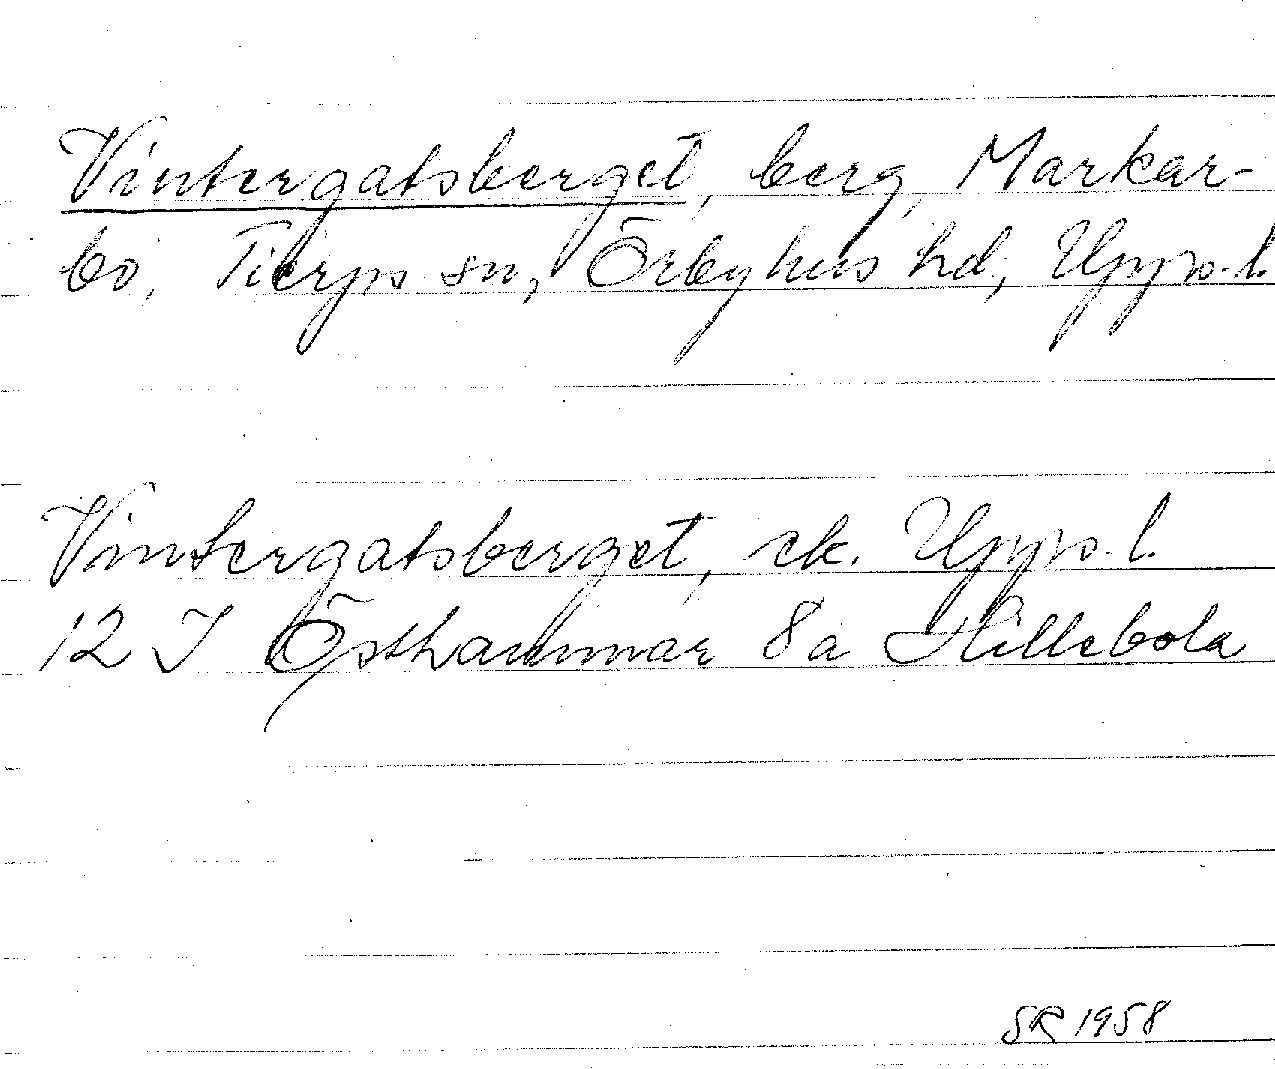 Vintergatsberget, berg, Markar-
bo, Tierps sn, Örbyhus hd, Upps. l.
Vintergatsberget, ek. Upps. l.
12 I Östhammar 8a Hillebola
SR 1958